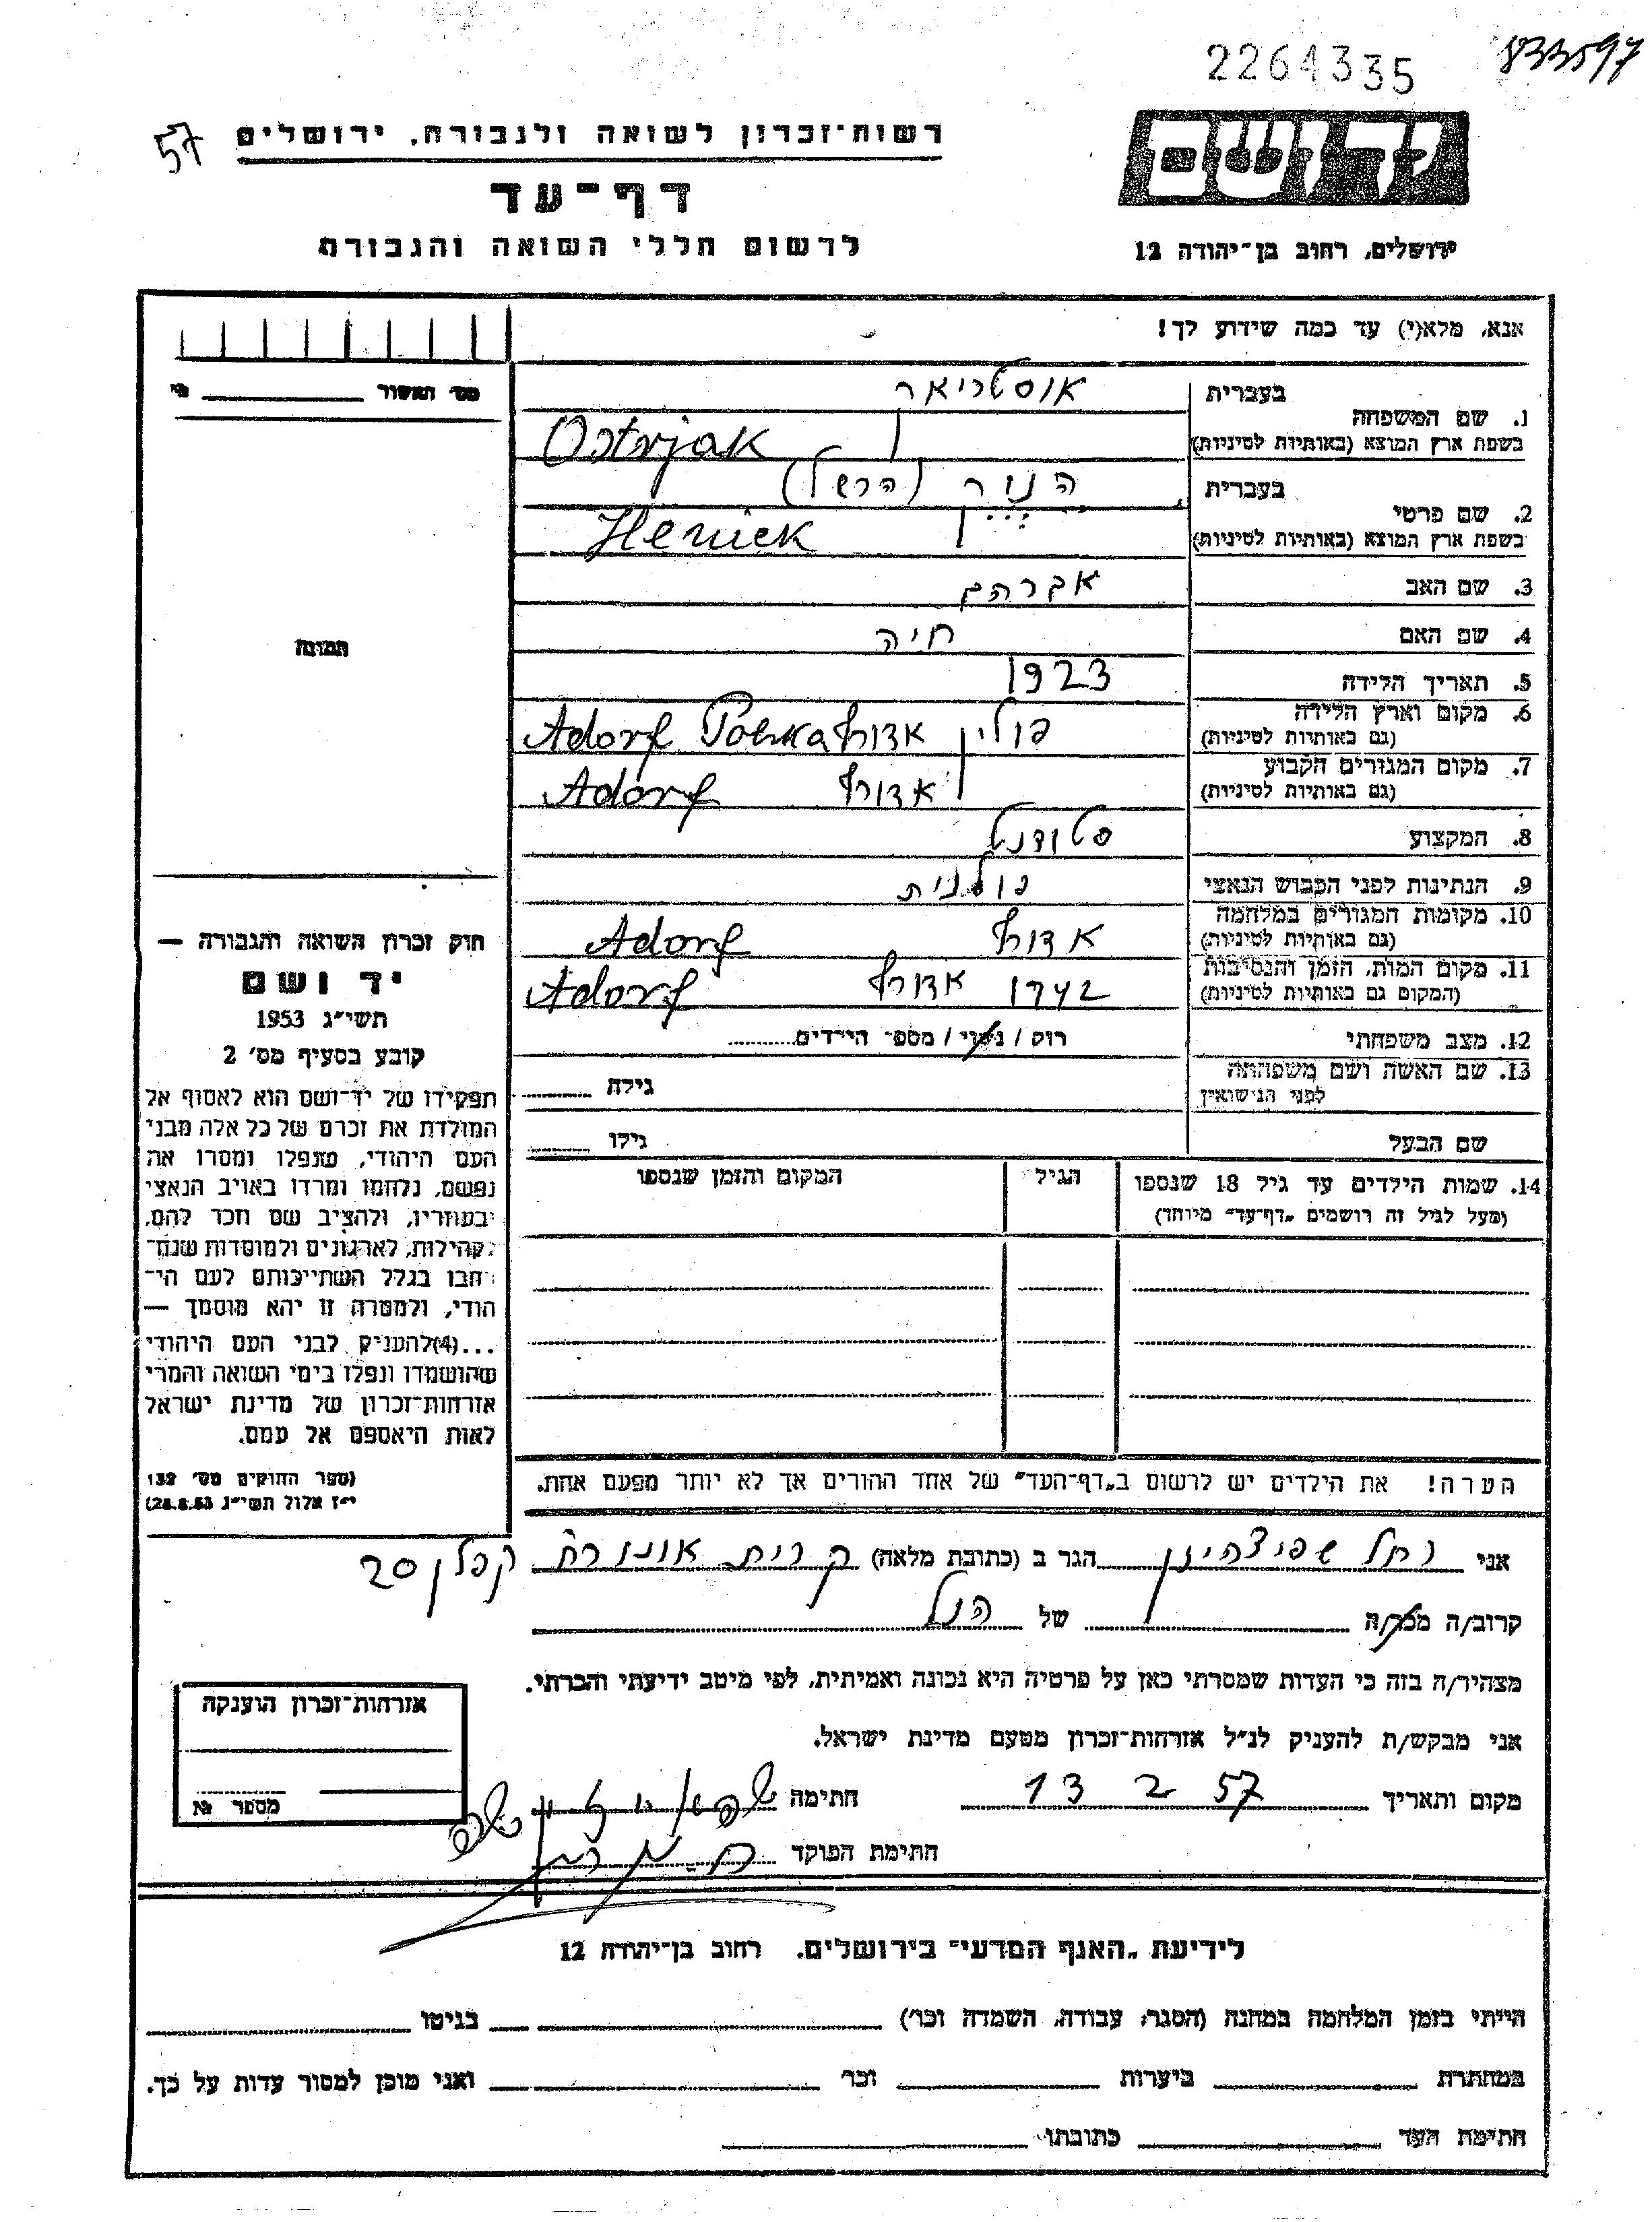 2264335
833597
57
רשות־זכרון לשואה ולגבורה, ירושלים
יד ושם
דף־עד
לרשום חללי השואה והגבורה
ירושלים, רחוב בן־יהודה 12
אנא, מלא(י) עד כמה שידוע לך!
מס' האשור
בעברית
1. שם המשפחה
אוסטריאר
בשפת ארץ המוצא (באותיות לטיניות)
Ostrjak
בעברית הנ (הרשל)
2. שם פרטי
בשפת ארץ המוצא (באותיות לטיניות)
Heniek
3. שם האב אברהם
4. שם האם חיה
5. תאריך הלידה 1923
6. מקום וארץ הלידה פולין אדורף Adorf Polska
(גם באותיות לטיניות)
7. מקום המגורים הקבוע אדורף Adorf
(גם באותיות לטיניות)
8. המקצוע סטודנט
9. הנתינות לפני הכבוש הנאצי פולנית
10. מקומות המגורים במלחמה אדורף Adorf
(גם באותיות לטיניות)
11. מקום המות, הזמן והנסיבות 1942 אדורף Adorf
(המקום גם באותיות לטיניות)
12. מצב משפחתי רוק / נשוי / מספר הילדים
13. שם האשה ושם משפחתה
לפני הנישואין
גילה
שם הבעל גילו
14. שמות הילדים עד גיל 18 שנספו הגיל המקום והזמן שנספו
(מעל לגיל זה רושמים „דף־עד" מיוחד)
הערה! את הילדים יש לרשום ב„דף־העד" של אחד ההורים אך לא יותר מפעם אחת.
תמונה
חוק זכרון השואה והגבורה —
יד ושם
תשי"ג 1953
קובע בסעיף מס' 2
תפקידו של יד־ושם הוא לאסוף אל
המולדת את זכרם של כל אלה מבני
העם היהודי, שנפלו ומסרו את
נפשם, נלחמו ומרדו באויב הנאצי
ובעוזריו, ולהציב שם וזכר להם,
לקהילות, לארגונים ולמוסדות שנח־
רבו בגלל השתייכותם לעם הי־
הודי, ולמטרה זו יהא מוסמך —
...(4)להעניק לבני העם היהודי
שהושמדו ונפלו בימי השואה והמרי
אזרחות־זכרון של מדינת ישראל
לאות היאספם אל עמם.
(ספר החוקים מס' 132
י"ז אלול תשי"ג 28.8.53)
אני רחל הגר ב (כתובת מלאה) קרית אונו קפלן 20
קרוב/ה מכר/ה של הנ"ל
מצהיר/ה בזה כי העדות שמסרתי כאן על פרטיה היא נכונה ואמיתית, לפי מיטב ידיעתי והכרתי.
אני מבקש/ת להעניק לנ"ל אזרחות־זכרון מטעם מדינת ישראל.
מקום ותאריך 13 2 57 חתימה
חתימת הפוקד
אזרחות־זכרון הוענקה
מספר №
לידיעת „האגף המדעי" בירושלים. רחוב בן־יהודה 12
הייתי בזמן המלחמה במחנה (הסגר, עבודה, השמדה וכו') בגיטו
במחתרת ביערות וכו' ואני מוכן למסור עדות על כך.
חתימת העד כתובתו